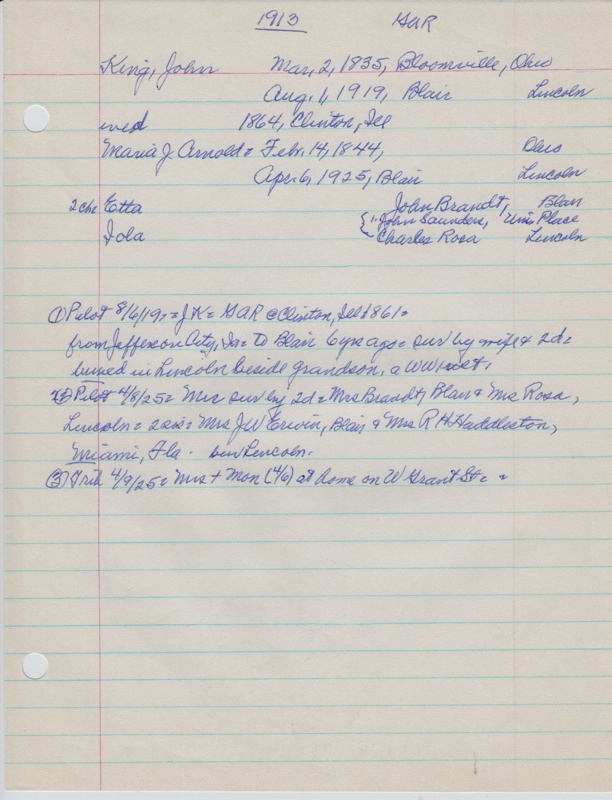 1913 GAR
King, John Mar, 2, 1835, Bloomville, Ohio
Aug. 1, 1919, Blair Lincoln
wed 1864, Clinton, Ill
Maria J. Arnold = Febr. 14, 1844, Ohio
Apr. 6, 1925, Blair Lincoln
2 chr Etta John Brandt, Blair
{" John Saunders, Univ Place
Iola Charles Rosa Lincoln
① Pilot 8/6/19 = JK = GAR @ Clinton, Ill 1861 =
from Jefferson City, Ia = to Blair 6 yrs ago = sur by wife & 2d =
buried in Lincoln beside grandson, a WW vet.
② Pilot 4/8/25 = Mrs sur by 2d = Mrs Brandt, Blair & Mrs Rosa,
Lincoln = 2 sis = Mrs J W Erwin, Blair & Mrs R H Haddleston,
Miami, Fla - bur Lincoln.
③ Trib 4/9/25 = Mrs + Mon (4/6) at home on W Grant St = =